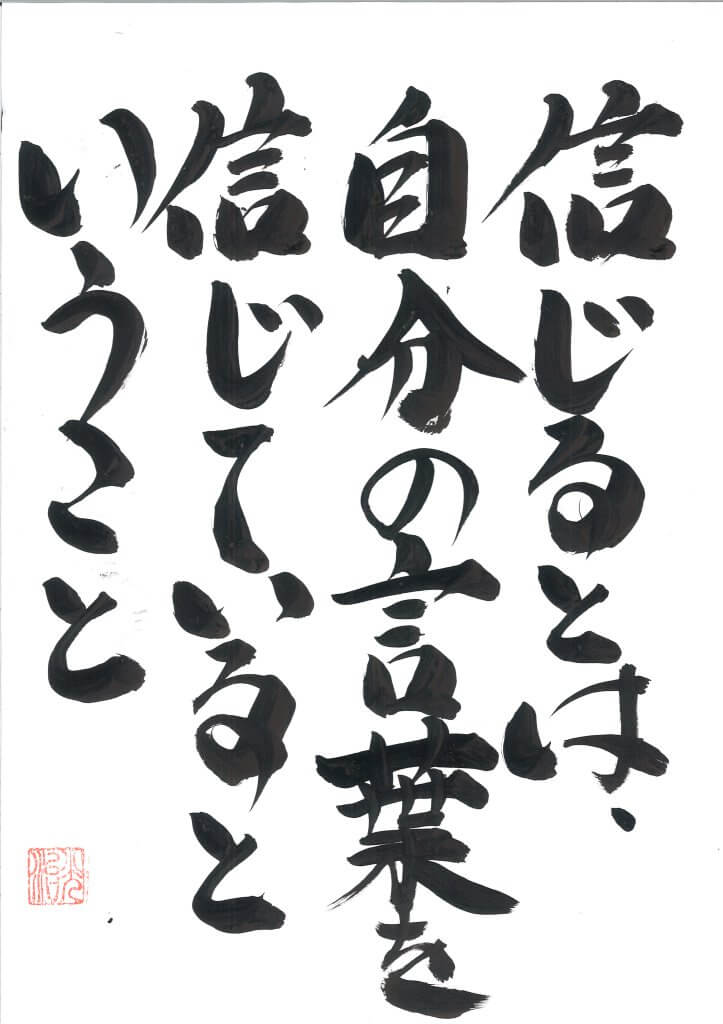 信じるとは、
自分の言葉を
信じていると
いうこと